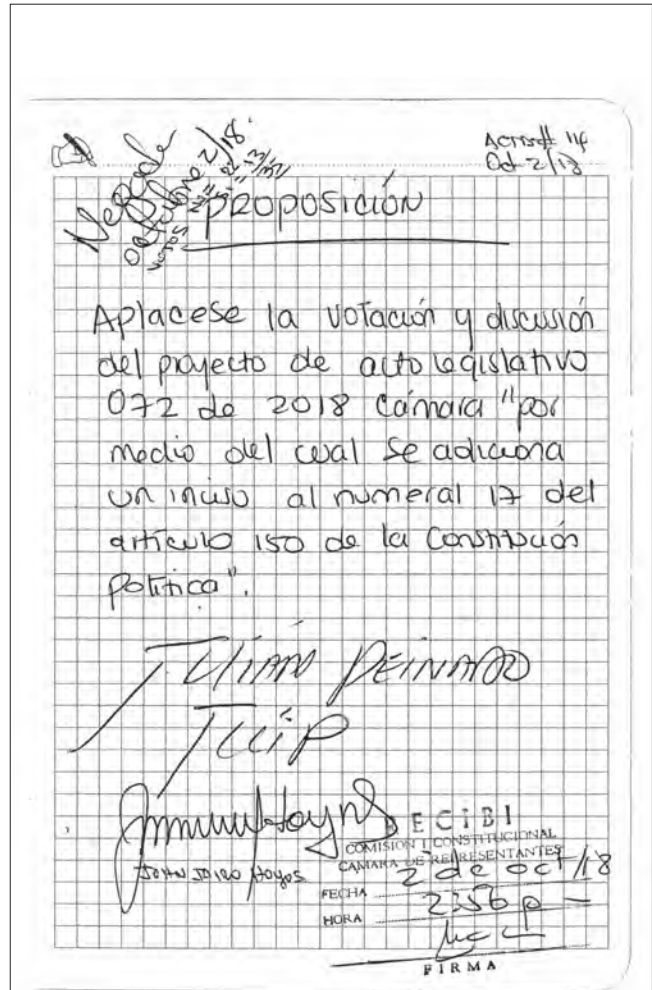 Negada
octubre 2/18.
Votos
Acta # 14
Oct 2/18
PROPOSICIÓN
Aplacese la votación y discusión
del proyecto de acto legislativo
072 de 2018 Cámara "por
medio del cual se adiciona
un inciso al numeral 17 del
artículo 150 de la Constitución
Política".
JULIAN PEINADO
JOHN JAIRO Hoyos
RECIBI
COMISION I CONSTITUCIONAL
CAMARA DE REPRESENTANTES
FECHA 2 de oct/18
HORA 2:56 p
FIRMA